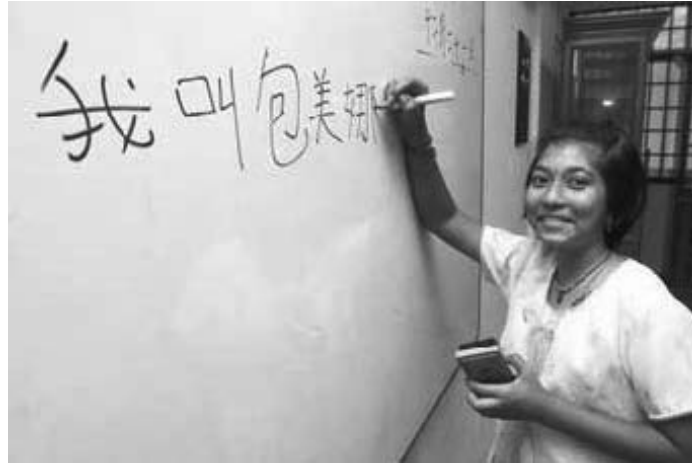 我叫包美娜